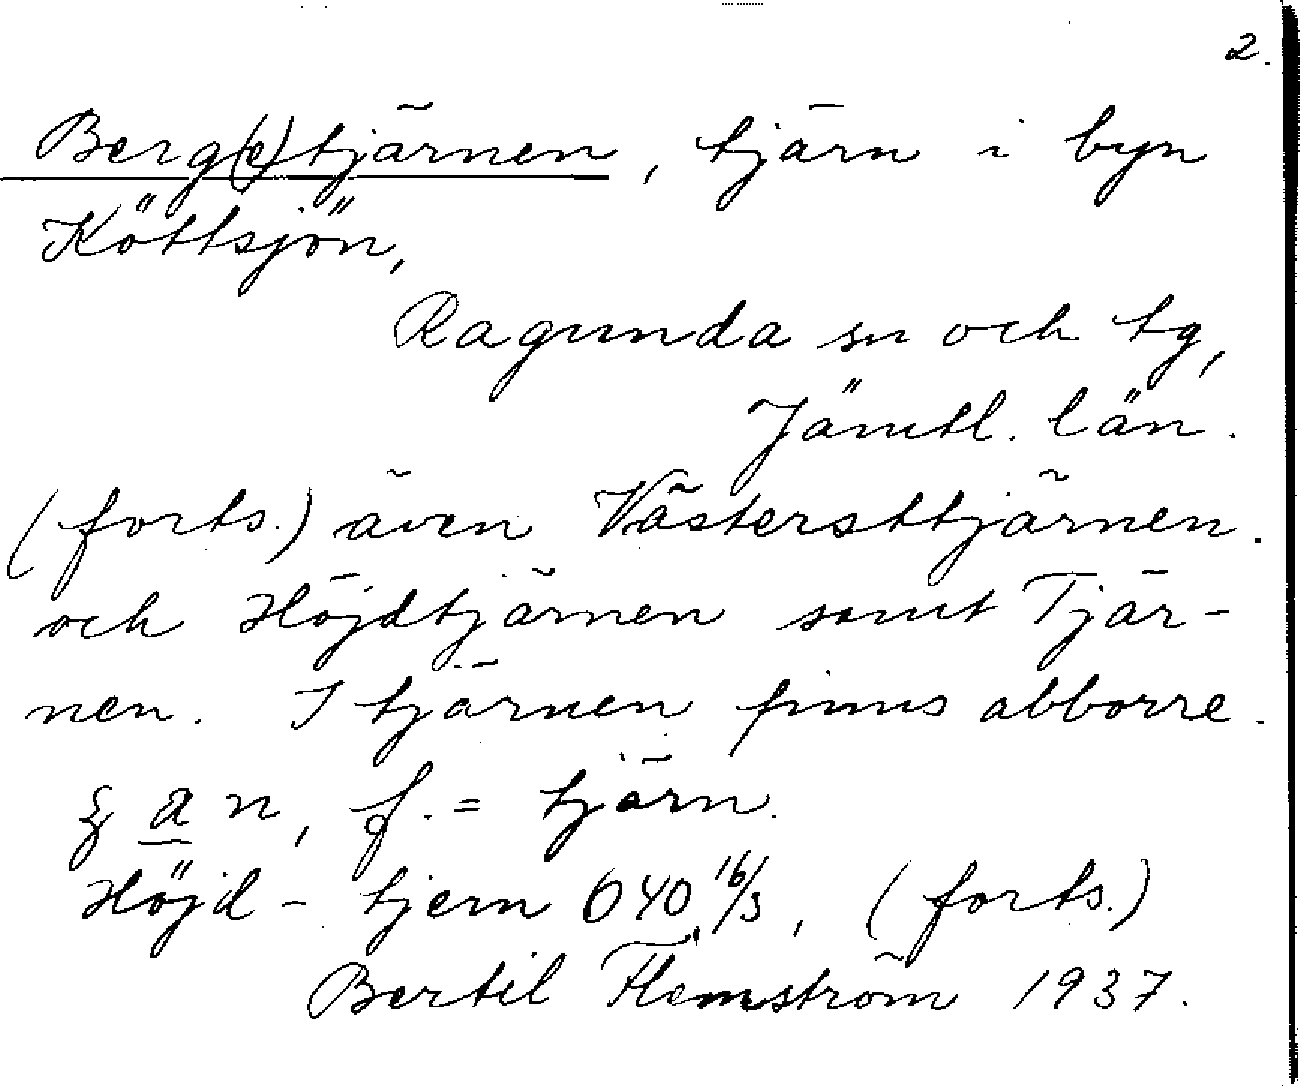 2.
Berg(e)tjärnen, tjärn i byn
Köttsjön,
Ragunda sn och tg,
Jämtl. län.
(forts.) även Västersttjärnen.
och Höjdtjärnen samt Tjär-
nen. I tjärnen finns abborre.
ꜩ a n, f. = tjärn.
Höjd - tjern 040 16/3, (forts.)
Bertil Flemström 1937.